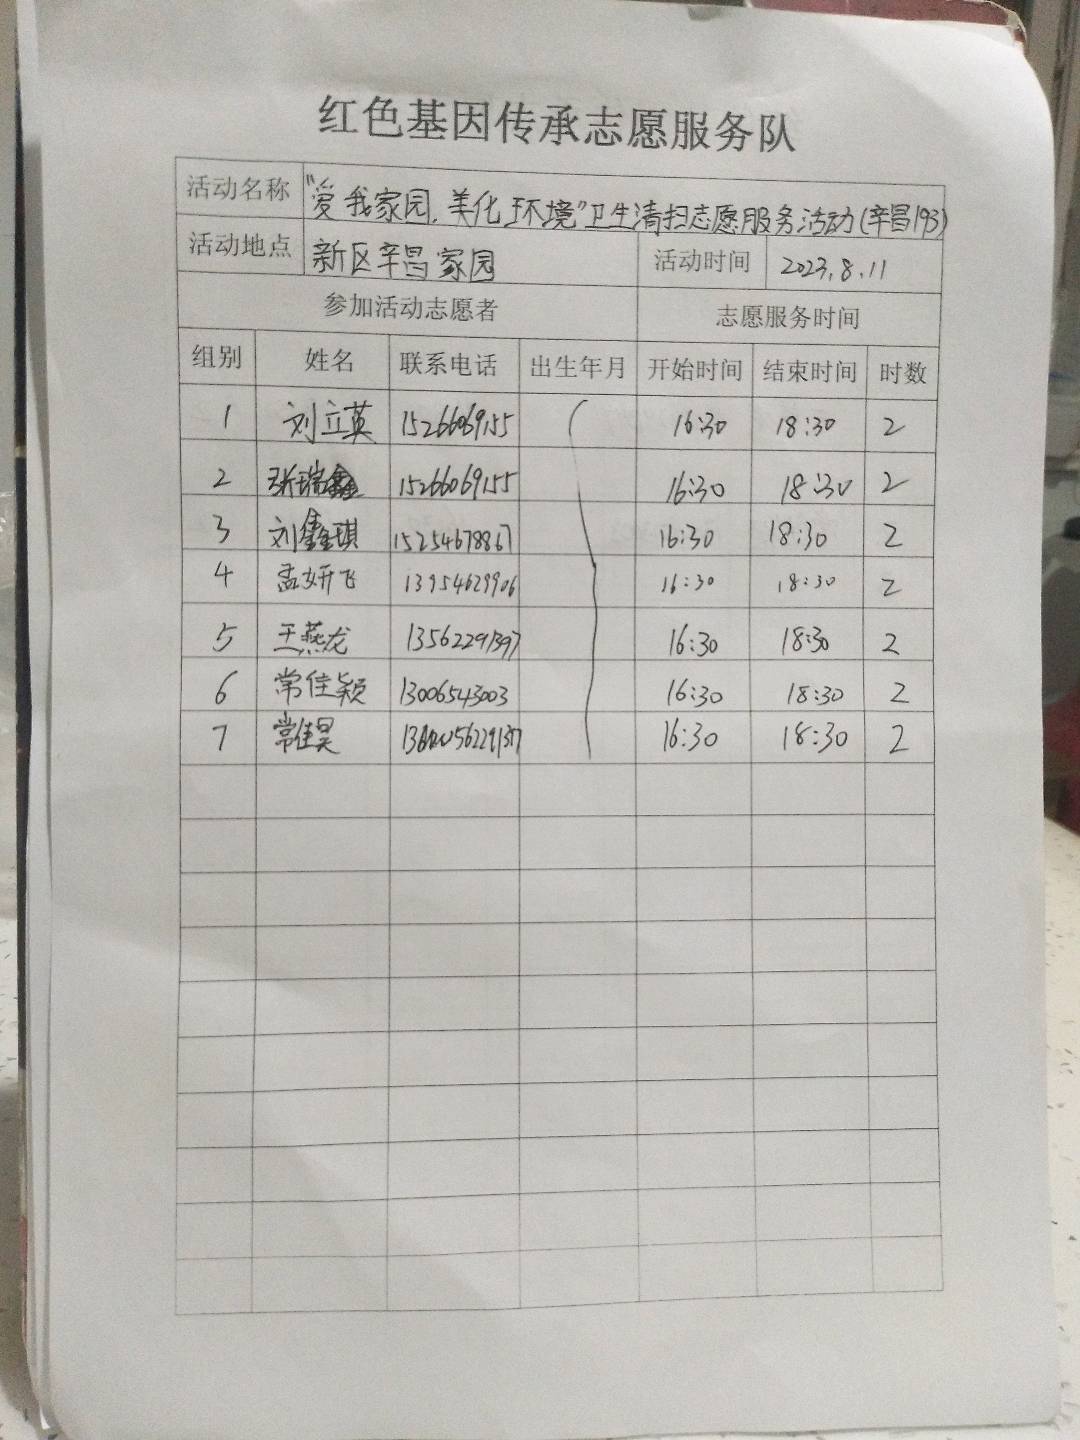 红色基因传承志愿服务队
活动名称 “爱我家园.美化环境”卫生清扫志愿服务活动(辛昌193)
活动地点 新区辛昌家园 活动时间 2023.8.11
参加活动志愿者 志愿服务时间
组别 姓名 联系电话 出生年月 开始时间 结束时间 时数
1 刘立英 15266069155 16:30 18:30 2
2 张瑞鑫 15266069155 16:30 18:30 2
3 刘鑫琪 15254678867 16:30 18:30 2
4 孟妍飞 13954629906 16:30 18:30 2
5 王燕龙 13562291397 16:30 18:30 2
6 常佳颖 13006543003 16:30 18:30 2
7 常佳昊 16:30 18:30 2